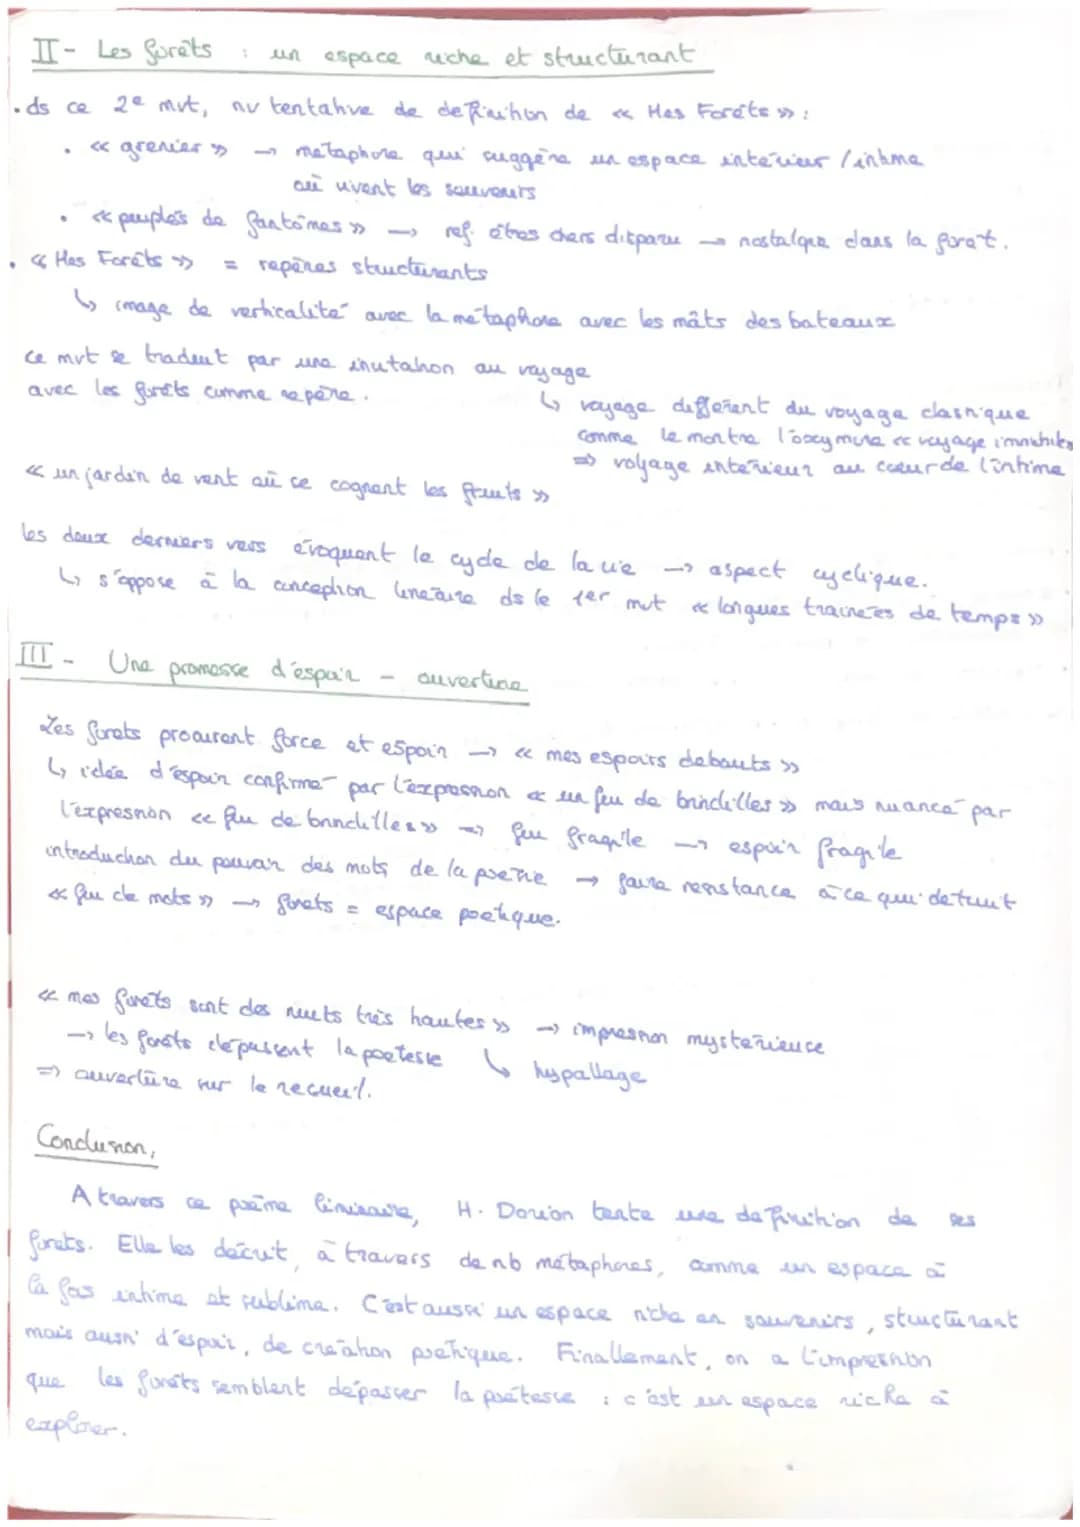 II- Les forêts : un espace riche et structurant
. ds ce 2e mvt, nv tentative de définition de « Mes Forêts » :
. « grenier » → métaphore qui suggère un espace intérieur / intime
où vivent les souvenirs
. « peuplés de fantômes » → ref. êtres chers disparu → nostalgie dans la forêt.
. « Mes Forêts » = repères structurants
↳ image de verticalité avec la métaphore avec les mâts des bateaux
ce mvt se traduit par une invitation au voyage
avec les forêts comme repère.
↳ voyage différent du voyage classique
comme le montre l'oxymore « voyage immobile
⇒ voyage intérieur au coeur de l'intime
« un jardin de vent où se cognent les fruits »
les deux derniers vers évoquent le cycle de la vie → aspect cyclique.
↳ s'oppose à la conception linéaire ds le 1er mvt « longues trainées de temps »
III - Une promesse d'espoir - ouverture
Les forêts procurent force et espoir → « mes espoirs debouts »
↳ idée d'espoir confirmé par l'expression « un feu de brindilles » mais nuancé par
l'expression « feu de brindilles » → feu fragile → espoir fragile
introduction du pouvoir des mots de la poésie → faire résistance à ce qui détruit
« feu de mots » → forêts = espace poétique.
« mes forêts sont des nuits très hautes » → impression mystérieuse
→ les forêts dépassent la poétesse ↳ hypallage
⇒ ouverture sur le recueil.
Conclusion,
A travers ce poème liminaire, H. Dorion tente une définition de ses
forêts. Elle les décrit, à travers de nb métaphores, comme un espace à
la fois intime et sublime. C'est aussi un espace riche en souvenirs, structurant
mais aussi d'espoir, de création poétique. Finallement, on a l'impression
que les forêts semblent dépasser la poétesse : c'est un espace riche à
explorer.